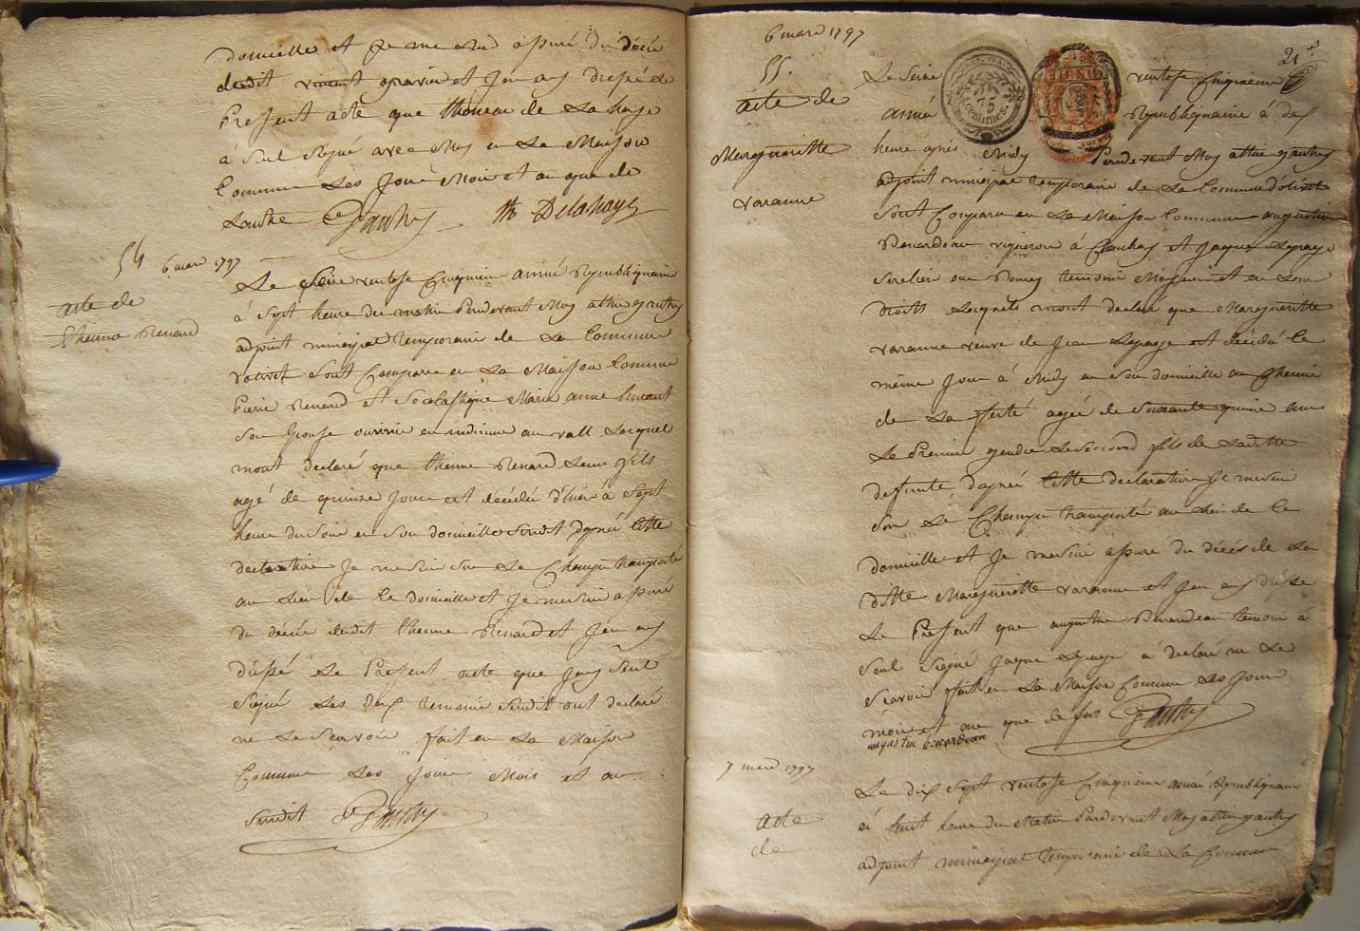 domicille et Je me suis assuré du décée
dudit vincent gravin et J'en ay dressé de
Present acte que thomeau de La haye
à Seul Signé avec Moy en La Maison
Commune Les Jour Mois et an que de
Lautre Gauthy th Delahaye
54 6 mars 1797
acte de
Ethienne Renard
Le Seize ventose Cinquieme année Republiquaine
à Sept heure du matin Pardevant Moy athin gauthy
adjoint municipal temporaire de La Commune
d'olivet Sont Comparu en La Maison Commune
Pierre Renard et Scolastique Marie anne
Son Epouse ouvrier en indienne au vall Lesquel
mont declaré que Ethienne Renard Leur fils
agé de quinze Jour est décédé d'hier à Sept
heure du Soir en Son domicille Susdit dapreé Cette
declaration Je me suis Sur Le Champ transporté
au Lieu de Ce domicille et Je me suis assuré
du décée dudit Ethienne Renard et J'en ay
dressé Le Present acte que J'ay Seul
Signé Les deux temoins Susdit ont declaré
ne Le Scavoir fait en La Maison
Commune Les Jour Mois et an
Susdit Gauthy
6 mars 1797
21
55.
acte de
Margueritte
varanne
Le Seize ventose Cinquieme
année Republiquaine à deux
heure aprés Midy Pardevant Moy athin gauthy
adjoint municipal temporaire de La Commune d'olivet
Sont Comparu en La Maison Commune augustin
Benardeau vigneron à et Jaque Lepage
temoin Majeur et
droits Lesquels mont declaré que Margueritte
varanne veuve de Jean Lepage est décédé Le
même Jour à Midy en Son domicille au Chemin
de La ferté agée de Soixante quinze ans
Le Premier gendre Le Second fils de Laditte
defunte dapreé Cette declaration Je me suis
Sur Le Champ transporté au Lieu de Ce
domicille et Je me suis assuré du décés de La
ditte Marguerette varanne et J'en ay dressé
Le Present que augustin Benardeau temoin à
Seul Signé Jaque Lepage a declaré ne Le
Scavoir fait en La Maison Commune Les Jour
mois et an que de sus Gauthy
augustin benardeau
7 mars 1797
acte
de
Le dix Sept ventose Cinquieme année Republiquaine
à huit heure du Matin Pardevant Moy athin gauthy
adjoint municipal temporaire de La Commune